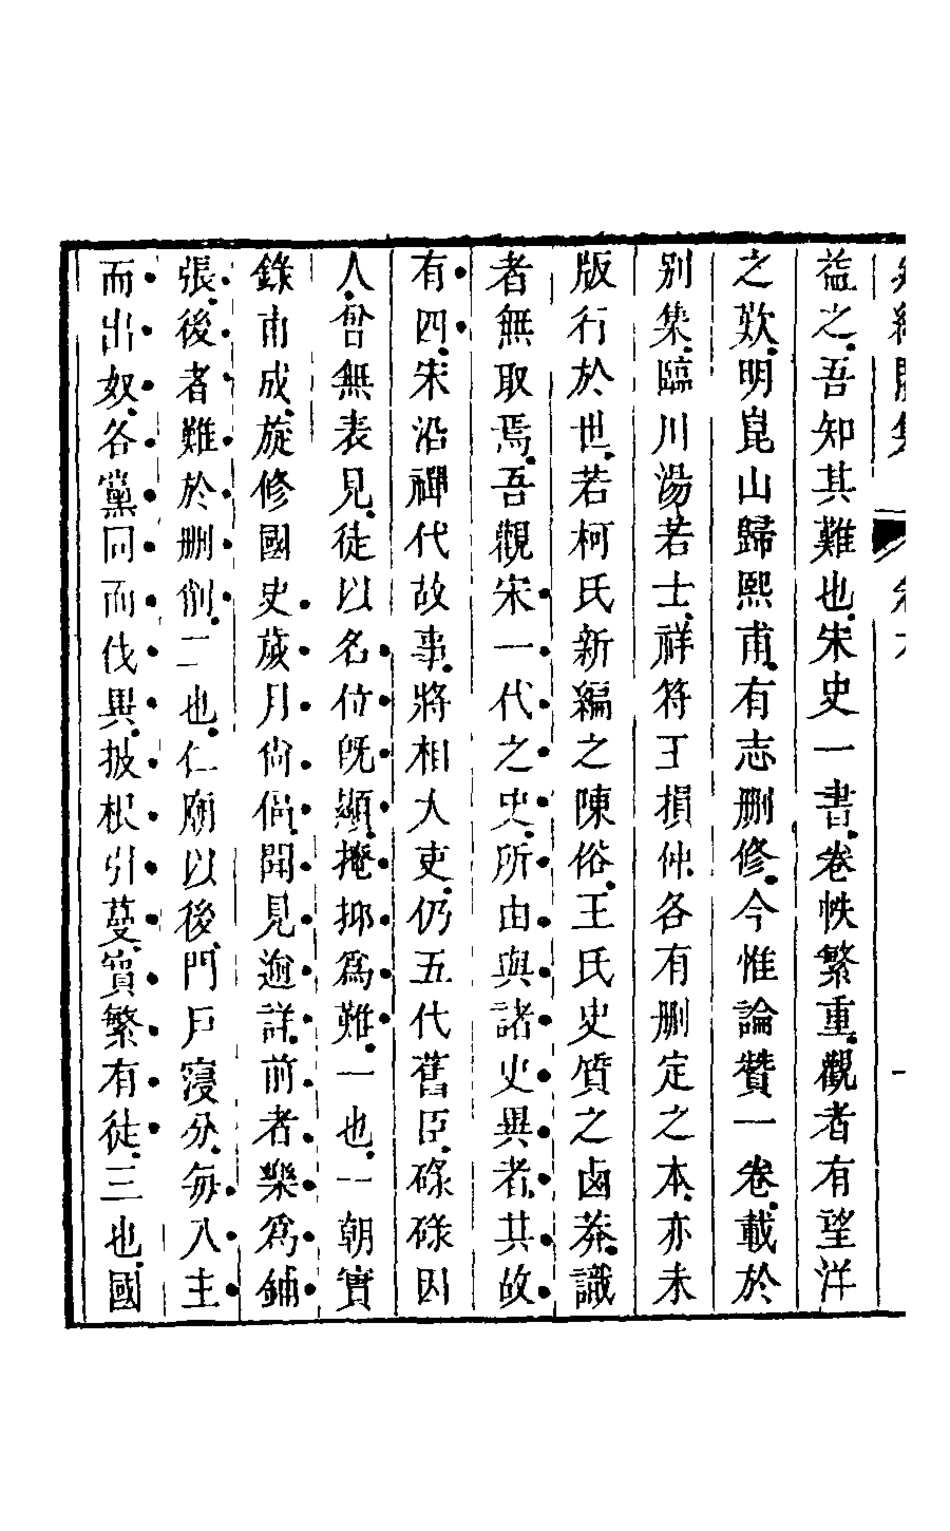 益之吾知其難也宋史一書卷帙繁重觀者有望洋
之歎明崑山歸熙甫有志刪修今惟論贊一卷載於
别集臨川湯若士祥符王損仲各有刪定之本亦未
版行於世若柯氏新編之陳俗王氏史質之鹵莽識
者無取焉吾觀宋一代之史所由與諸史異者其故
有四宋沿禪代故事將相大吏仍五代舊臣碌碌因
人曾無表見徒以名位旣顯掩抑爲難一也一朝實
錄甫成旋修國史歲月尙侷聞見逾詳前者樂爲鋪
張後者難於刪削二也仁廟以後門戸寖分每入主
而出奴各黨同而伐異披根引蔓實繁有徒三也國